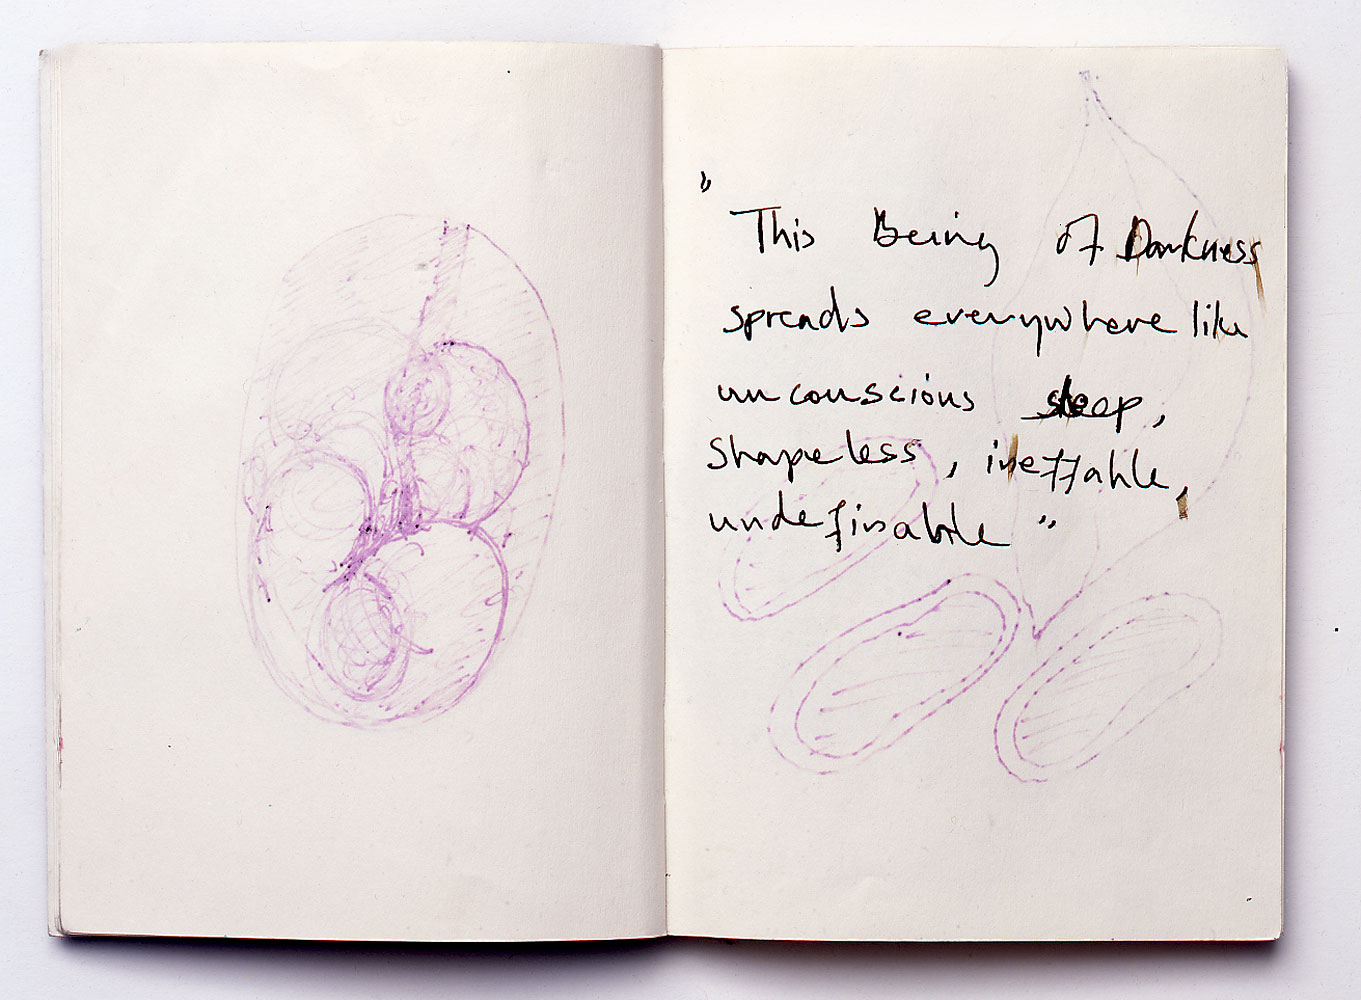 "This Being of Darkness
spreads everywhere like
unconscious sleep,
shapeless, ineffable,
undefinable"